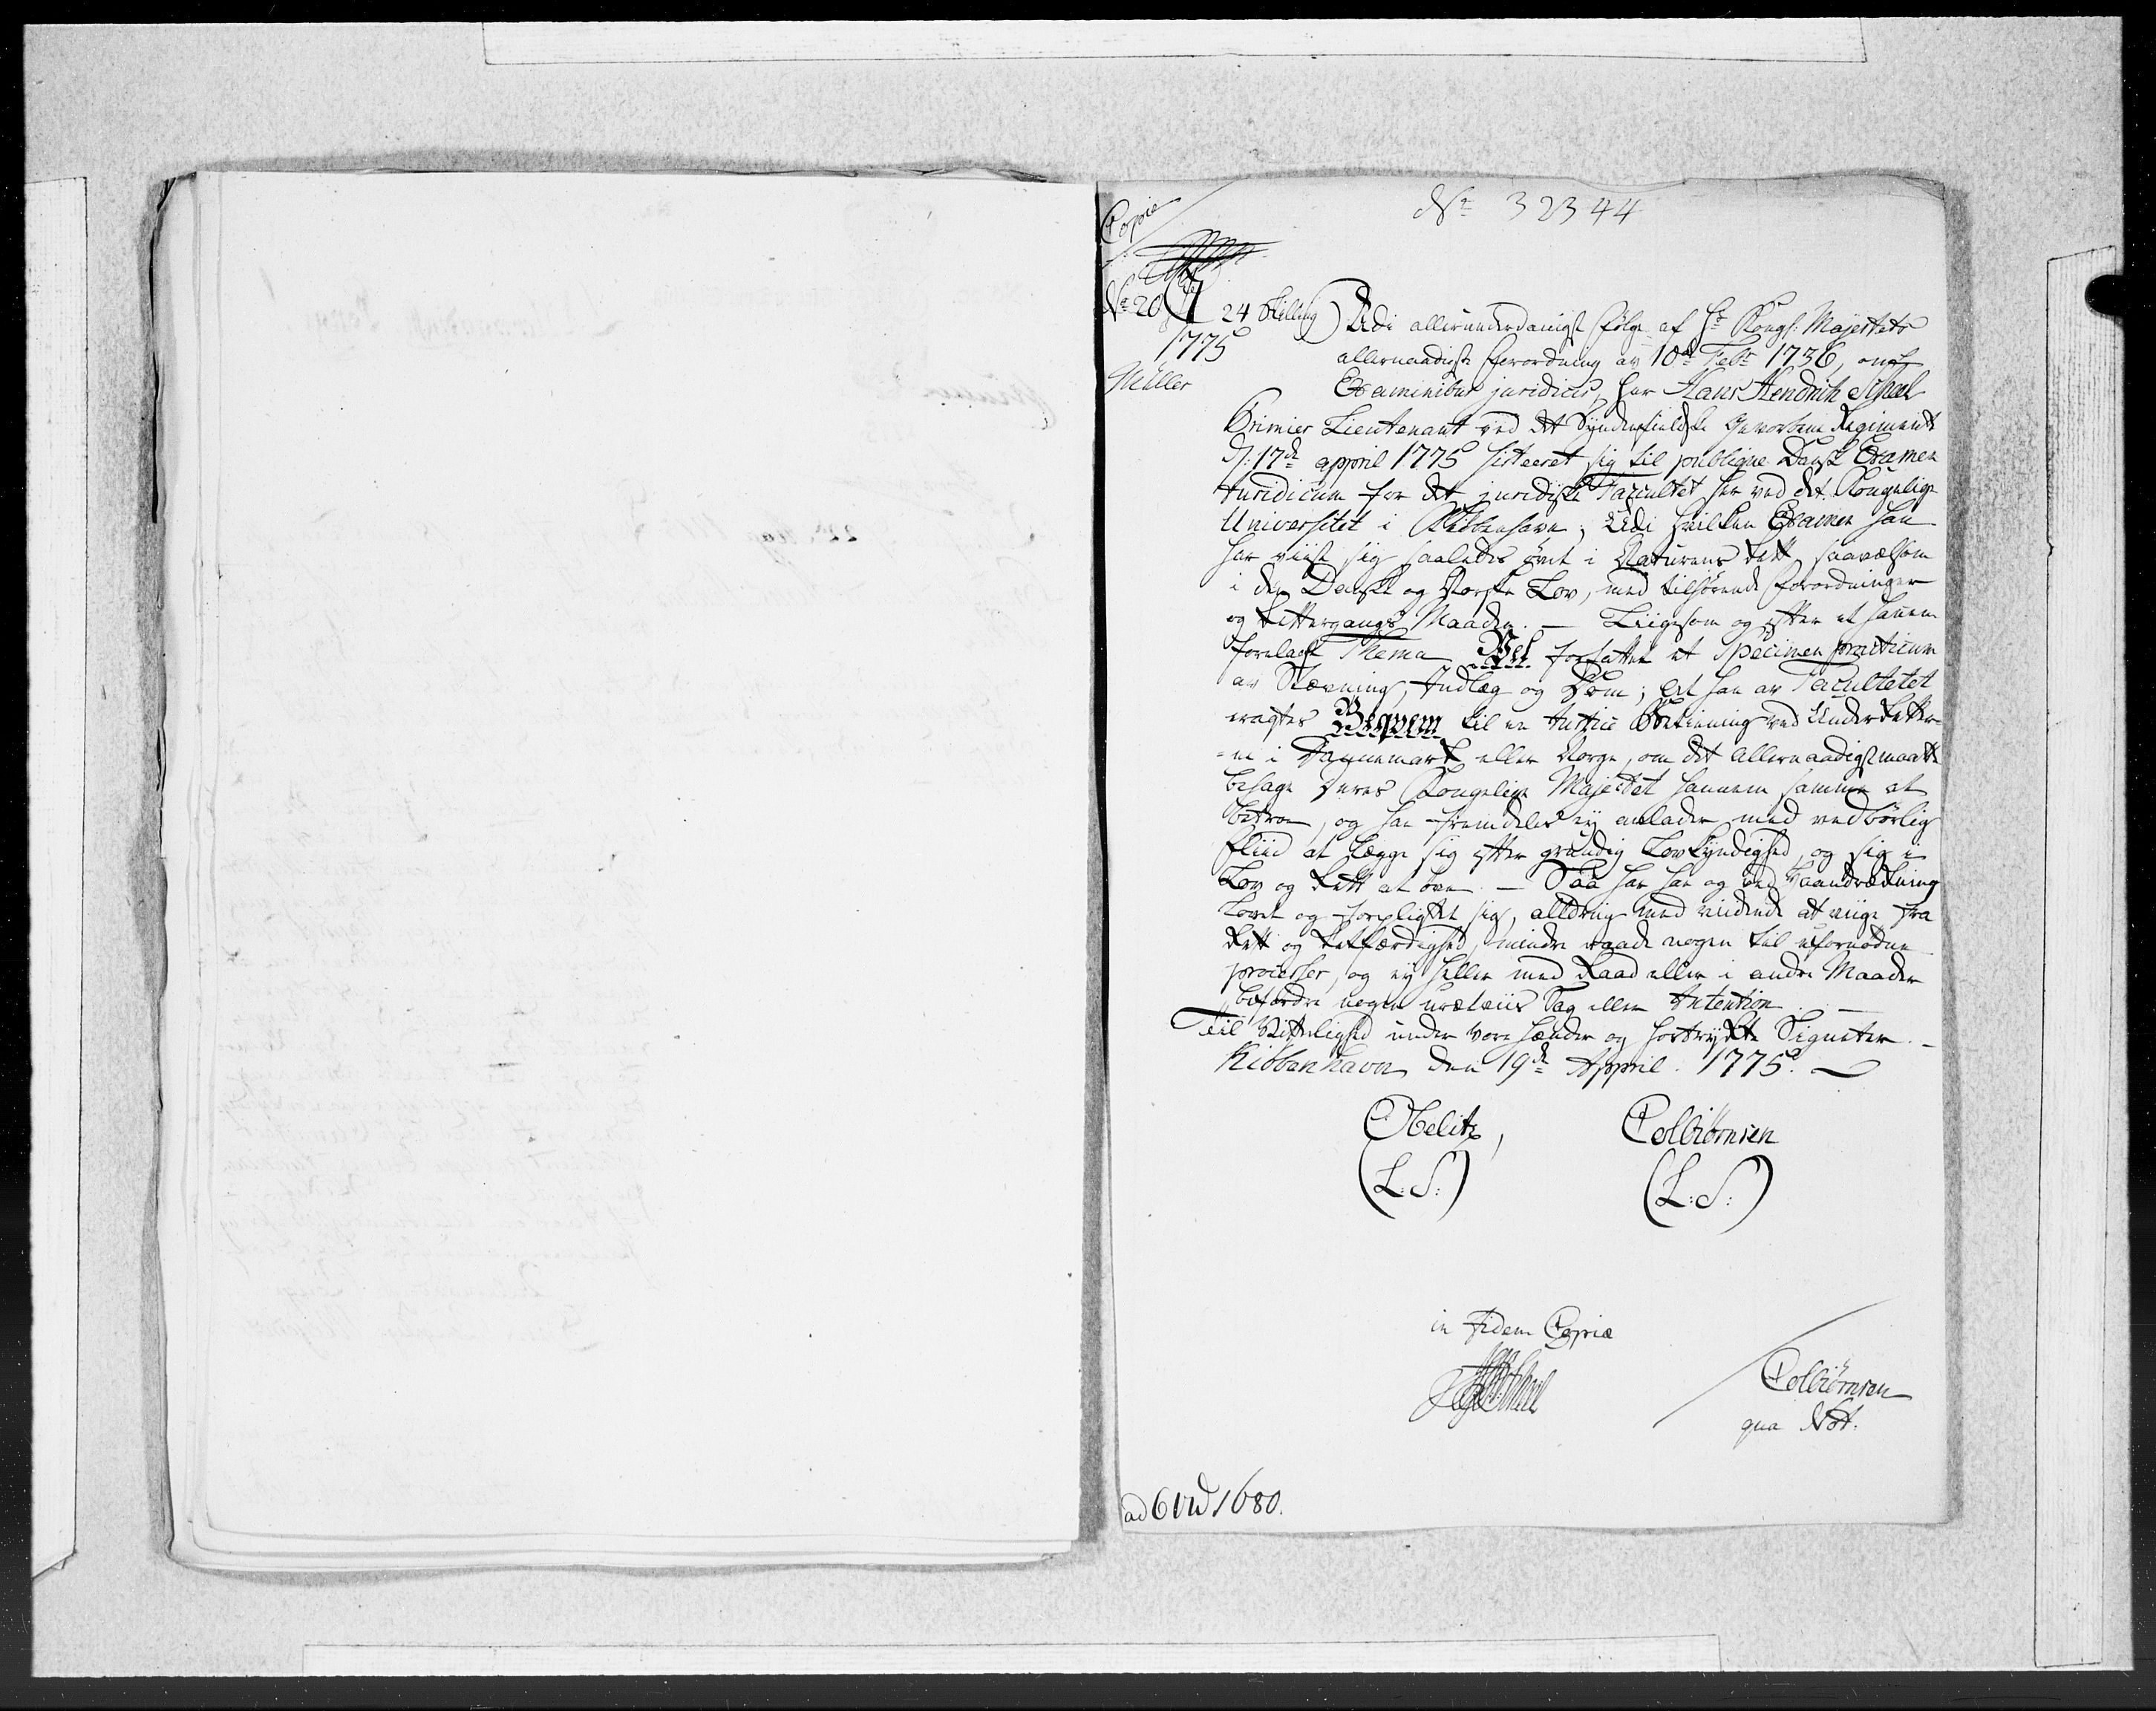 Copie
No 32344
No 20 24 Skilling
1775
Müller
Udi allerunderdanigst Følge af Hs Kongl: Majestets
allernaadigste Forordning av 10de Febr 1736, om
Examinibus juridicis, har Hans Hendrich Scheel
Primier Lieutenant ved det Syndenfieldske Gevorbene Regiment
d: 17de april 1775 sisteret sig til publique Dansk Examen
Juridicum for det juridiske Facultet her ved det Kongelige
Universitet i Kiøbenhavn; Udi hvilken Examen han
har viist sig saaledes øvet i Naturens Rett, saavelsom
i den Danske og Norske Lov, med tilhørende Forordninger
og Rettergangs Maaden. — Liigesom og efter et hannem
forelagt Thema Vel forfattet et Specimen practicum
av Stævning, Indlæg og Dom; at han av Facultetet
eragtes Beqvem til en Justice Betiening ved Underretter-
-ne i Dannemark eller Norge, om det allernaadigst maatte
behage Deres Kongelige Majestet hannem samme at
betroe, og han fremdeles ey anlader med vedbørlig
Fliid at lægge sig efter grundig Lovkyndighed, og sig i
Lov og Rett at øve. — Saa har han og ved Haandrækning
lovet og forpligtet sig, alldrig med vidende at viige fra
Rett og Retfærdighed, mindre raade nogen til ufornødne
processer, og ey heller med Raad eller i andre Maader
befordre nogen urætviis Sag eller Intention. —
Til Vitterlighed under vore Hænder og hostrykte Signeter. —
Kiöbenhavn den 19de April. 1775. —
Obelitz, Colbiörnsen
(L:S:) (L:S:)
in Fidem Copiæ
HHScheel
Colbiörnsen
qua Not:
ad 6 1680.